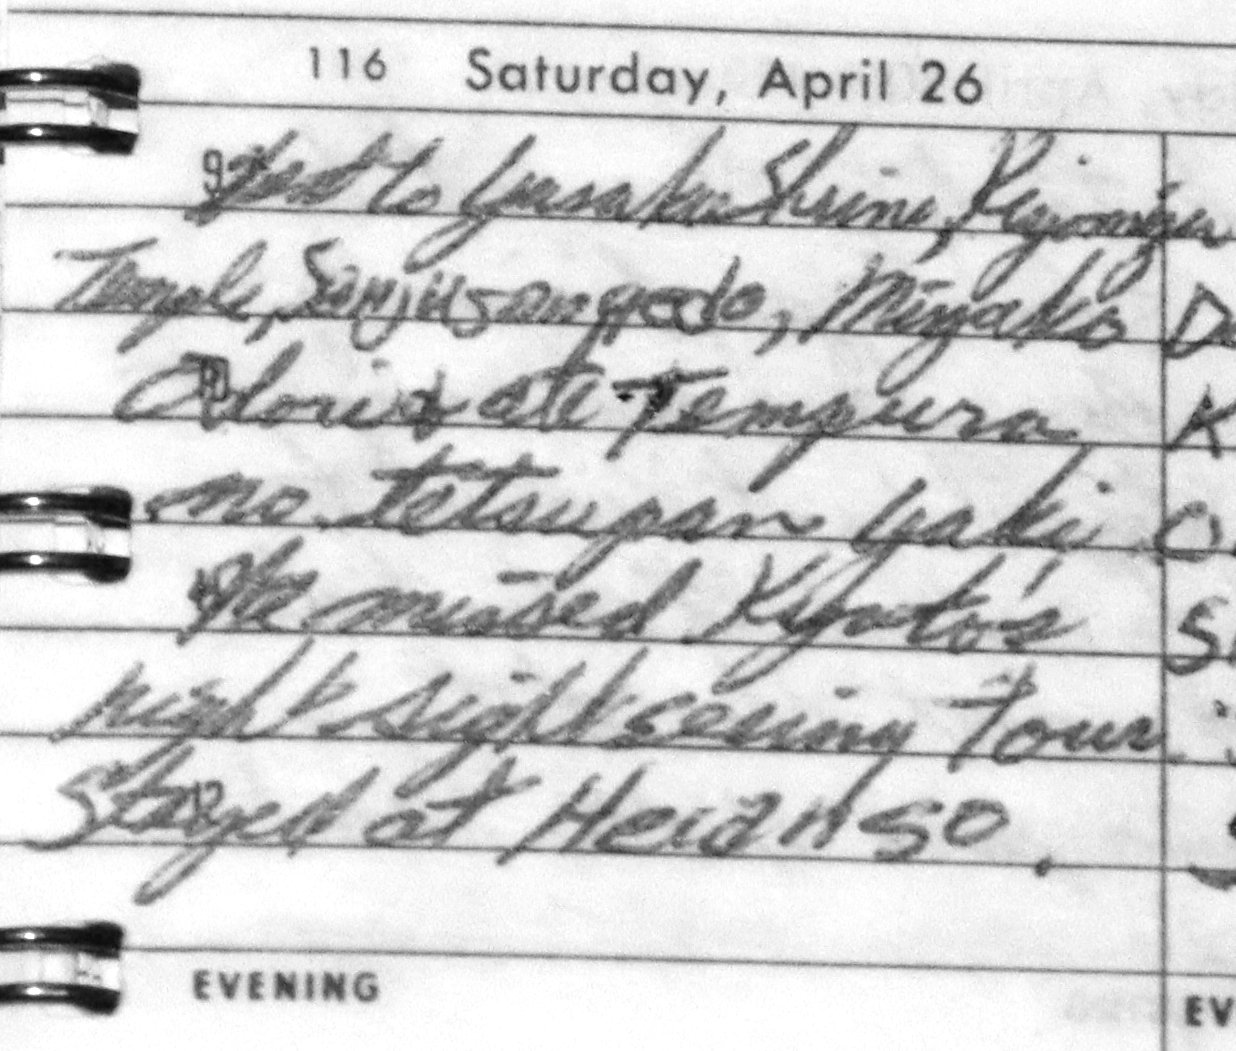 116 Saturday, April 26
9 Went to Yasaka Shrine, Kiyomizu
Temple, Sanjusangedo, Miyako
Odori & ate Tempura
no tetsupan yaki
We missed Kyoto's
night sightseeing tour.
Stayed at Heianso.
EVENING
EV